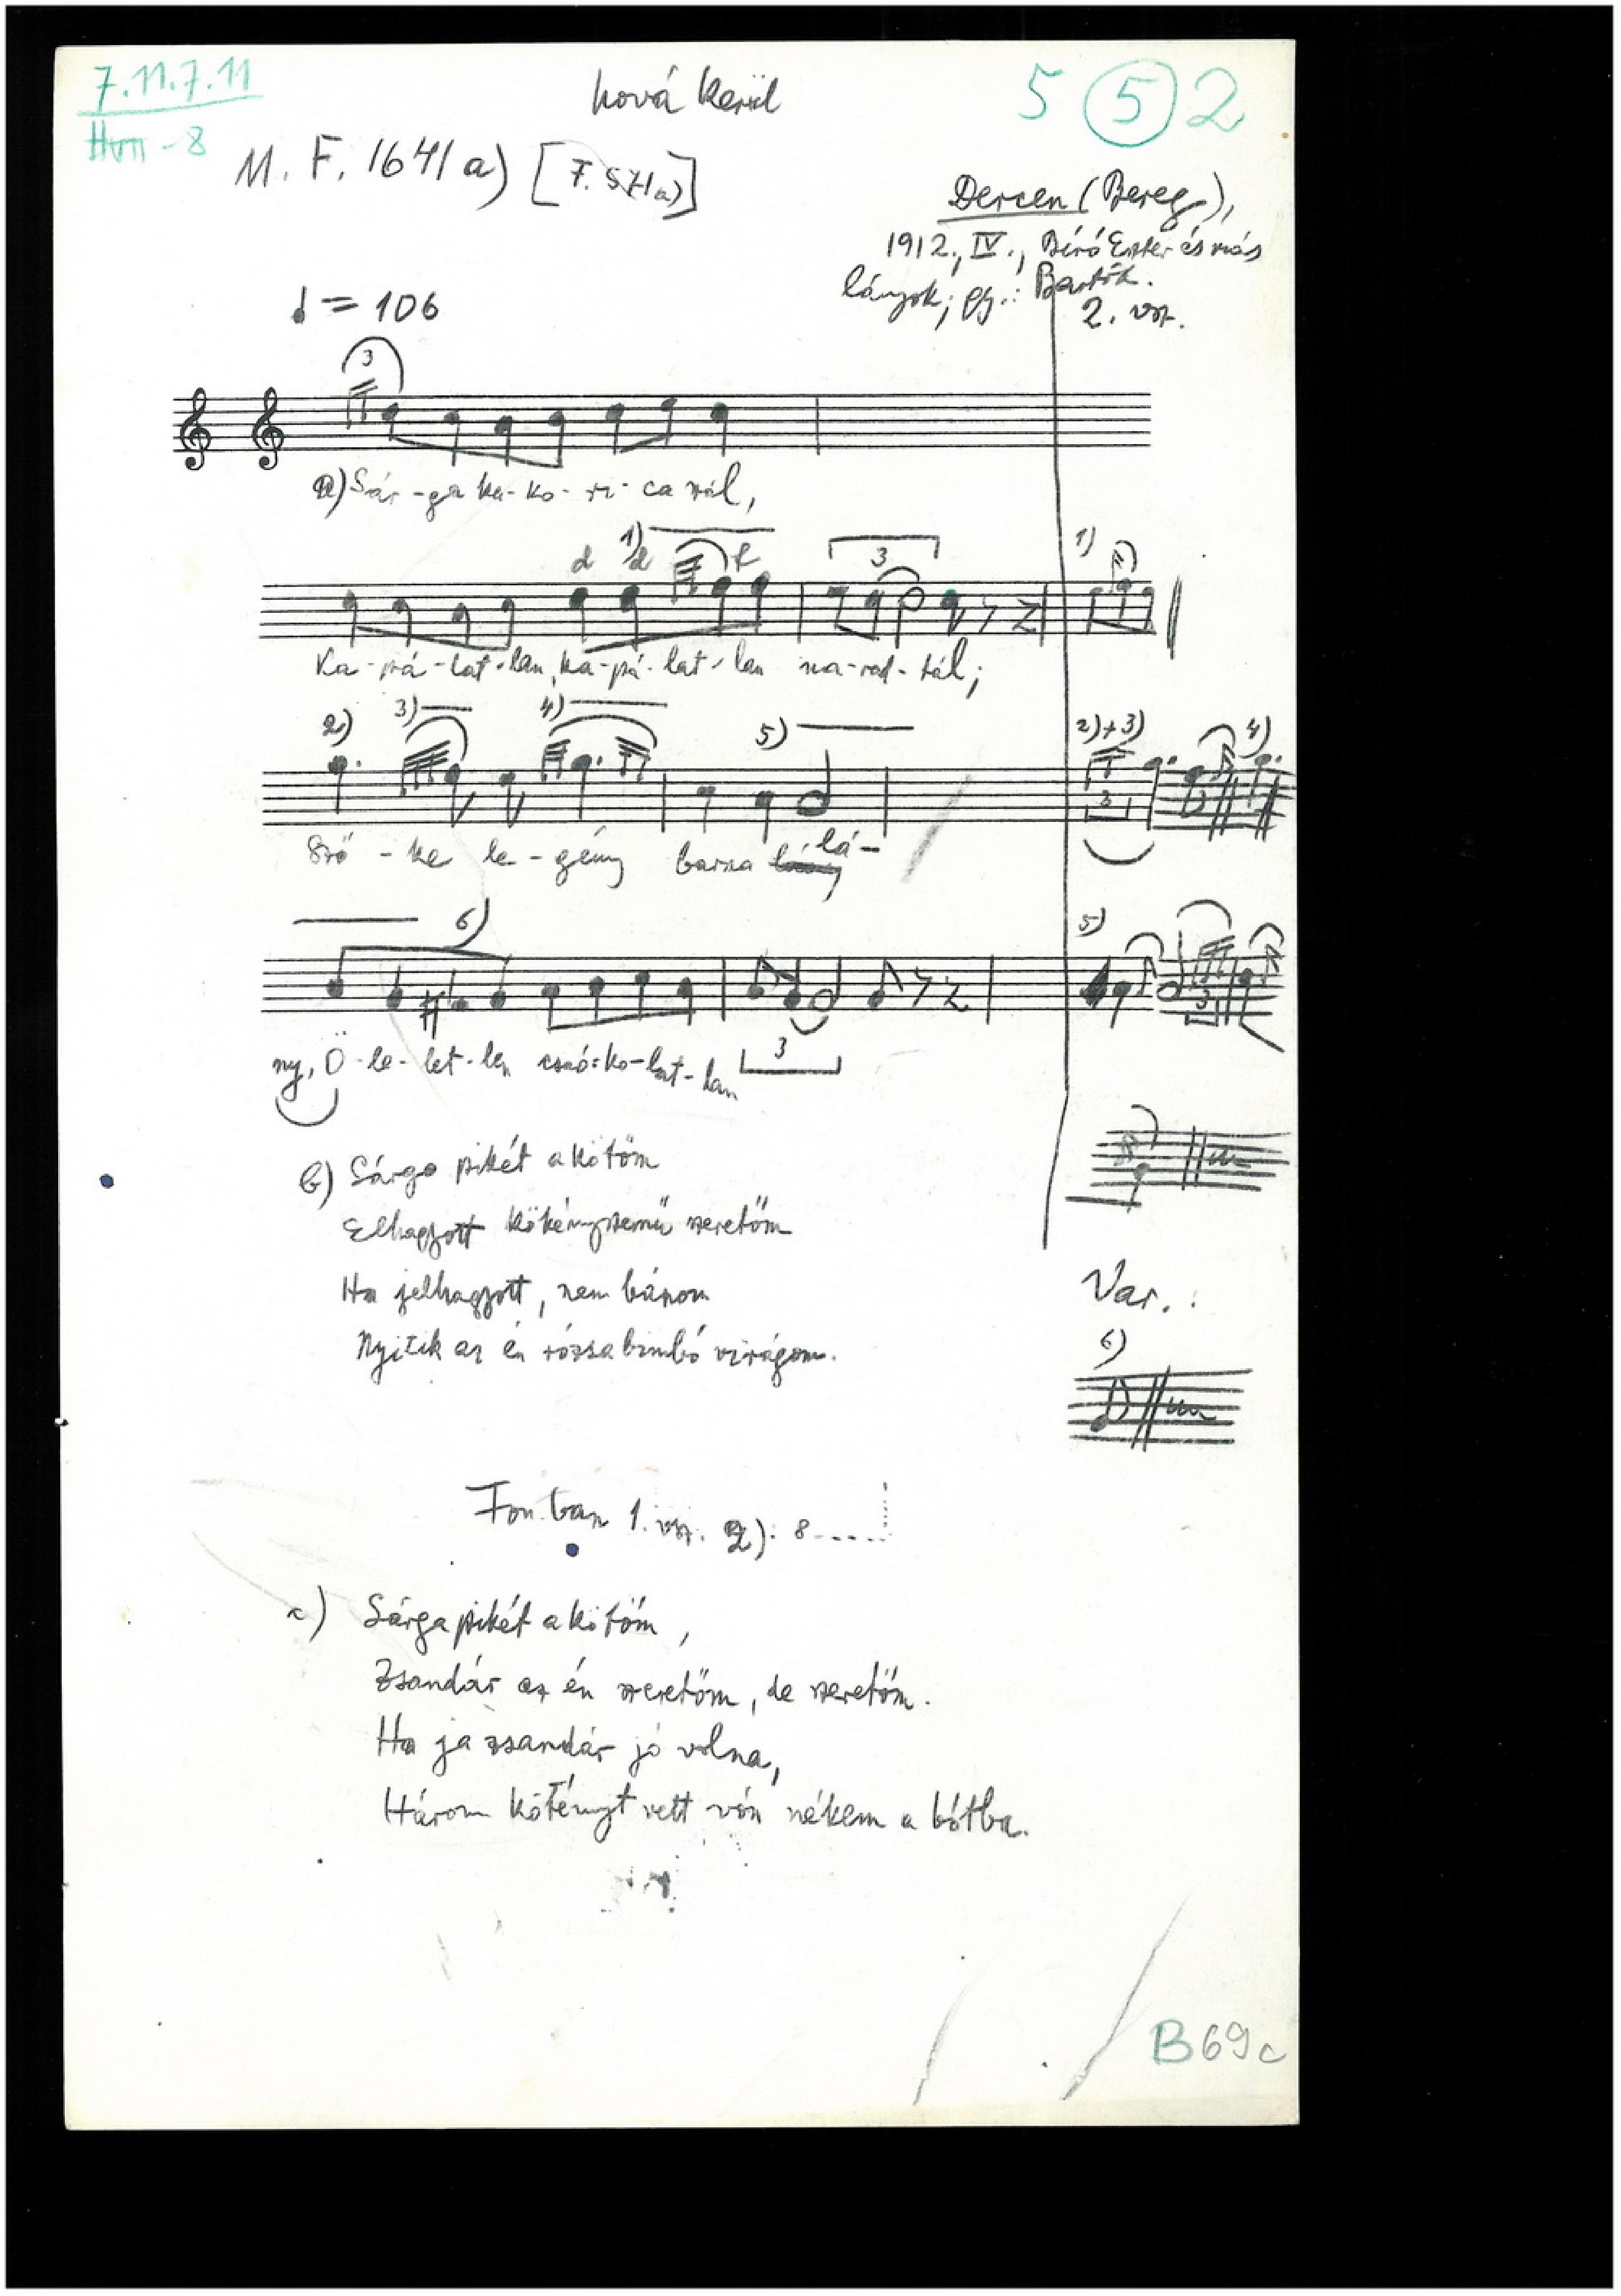 7.11.7.11
hová kerül
5 5 2
HVII - 8
M. F. 1641 a) [F. 571a)]
Dercen (Bereg),
1912., IV., Bíró Eszter és más
lányok; gy.: Bartók.
2. vsz.
= 106
3
a) Sár-ga ku-ko-ri-ca szál,
1)
3
1)
Ka-pá-lat-lan, ka-pá-lat-lan ma-rad-tál;
2) 3) 4) 5)
2)+3) 4)
3
Sző-ke le-gény barna lá-
6)
5)
3
ny, Ö-le-let-len csó-ko-lat-lan
3
b) Sárga pikét a kötőm
Elhagyott kökényszemű szeretőm
Ha jelhagyott, nem bánom
Nyitik az én rózsabimbó virágom.
Var.:
6)
Fon.ban 1. vsz. 2): 8
c) Sárga pikét a kötőm,
Zsandár az én szeretőm, de szeretőm.
Ha ja zsandár jó volna,
Három kötényt vett vón nékem a bótba.
B 69c